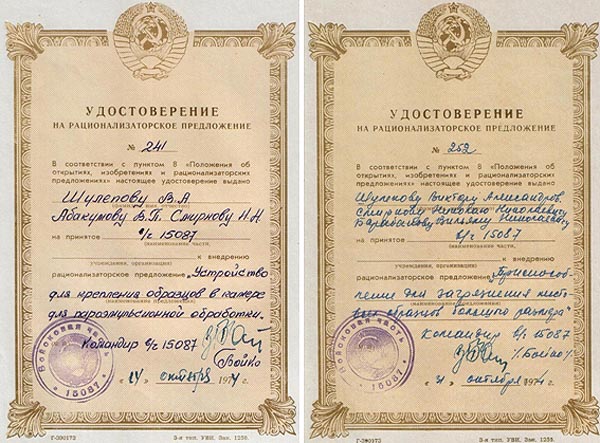 УДОСТОВЕРЕНИЕ
НА РАЦИОНАЛИЗАТОРСКОЕ ПРЕДЛОЖЕНИЕ
№ 241
В соответствии с пунктом 8 «Положения об
открытиях, изобретениях и рационализаторских
предложениях» настоящее удостоверение выдано
Шулепову В.А.
Абакумову В.П. Смирнову Н.Н.
на принятое в/ч 15087
(наименование части,
к внедрению
учреждения, организации)
рационализаторское предложение „Устройство
для крепления образцов в камере
для пароэмульсионной обработки.
Командир в/ч 15087
Бойко
Войсковая часть
* 15087 *
«14» октября 1974
Г-390172 3-я тип. УВИ. Зак. 1256.
УДОСТОВЕРЕНИЕ
НА РАЦИОНАЛИЗАТОРСКОЕ ПРЕДЛОЖЕНИЕ
№ 252
В соответствии с пунктом 8 «Положения об
открытиях, изобретениях и рационализаторских
предложениях» настоящее удостоверение выдано
Шулепову Виктору Александров.
Смирнову Николаю Николаевичу
Барабанову Николаевичу
на принятое в/ч 15087
(наименование части,
к внедрению
учреждения, организации)
рационализаторское предложение „Приспособ-
ление для загрязнения
образцов большого размера"
Командир в/ч 15087
/Бойко/
Войсковая часть
* 15087 *
октября 1974 г.
Г-390172 3-я тип. УВИ. Зак. 1256.